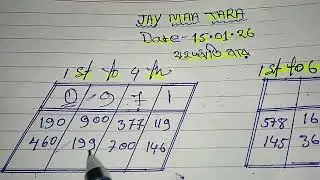 JAY MAA TARA
Date-15.01.26
বৃহস্পতি বার
1 st to 4 th
9 7 1
190 900 377 119
460 199 700 146
1 st to 6
578 16
145 36